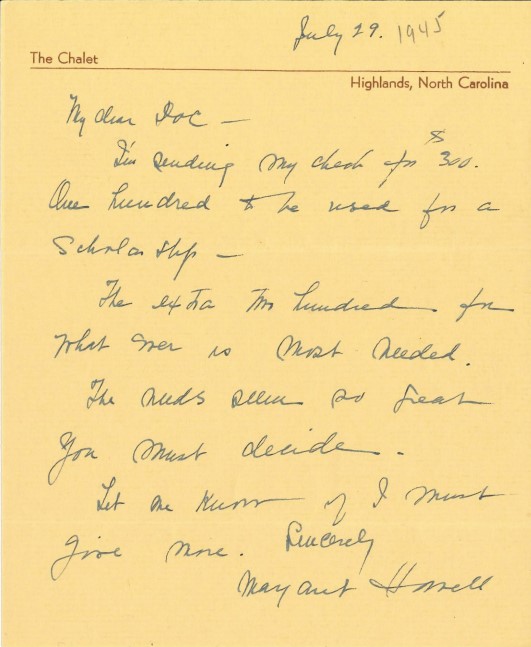 July 29. 1945
The Chalet
Highlands, North Carolina
My dear Doc —
I'm sending my check for $300.
One hundred to be used for a
Scholarship —
The extra two hundred for
what ever is most needed.
The needs seem so great
You must decide.
Let me know if I must
give more. Sincerely
Margaret Howell